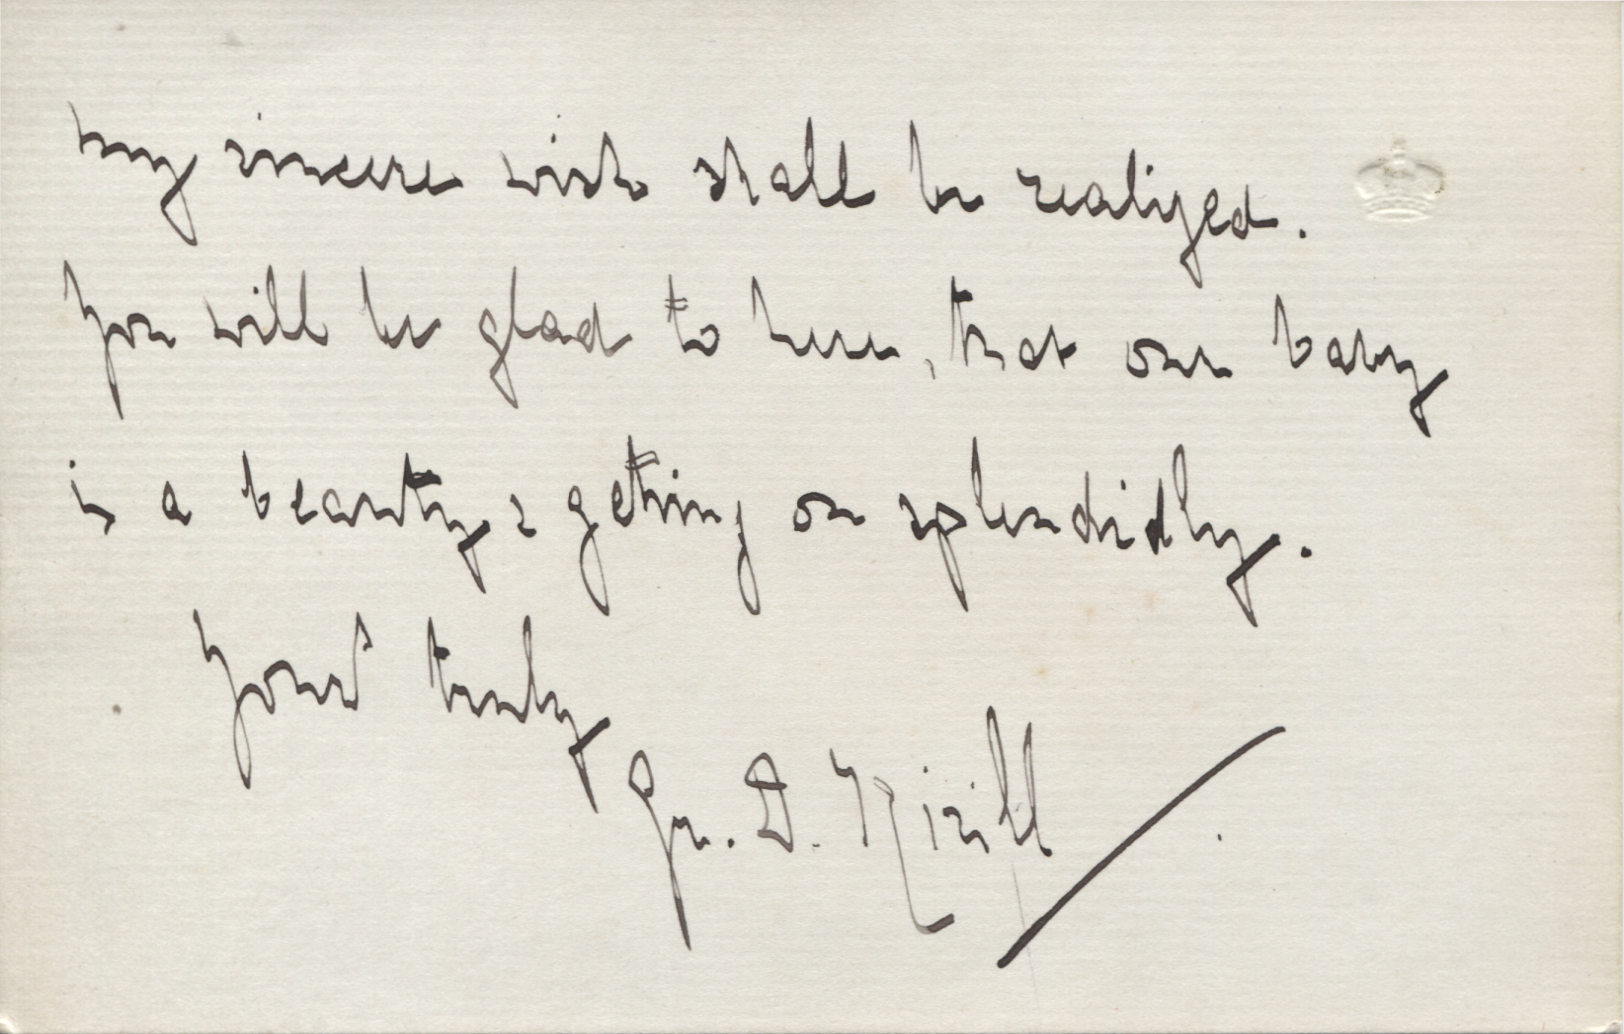 my sincere wish shall be realized.
You will be glad to here, that our baby
is a beauty & getting on splendidly.
Yours truly
Gr. D. Kirill